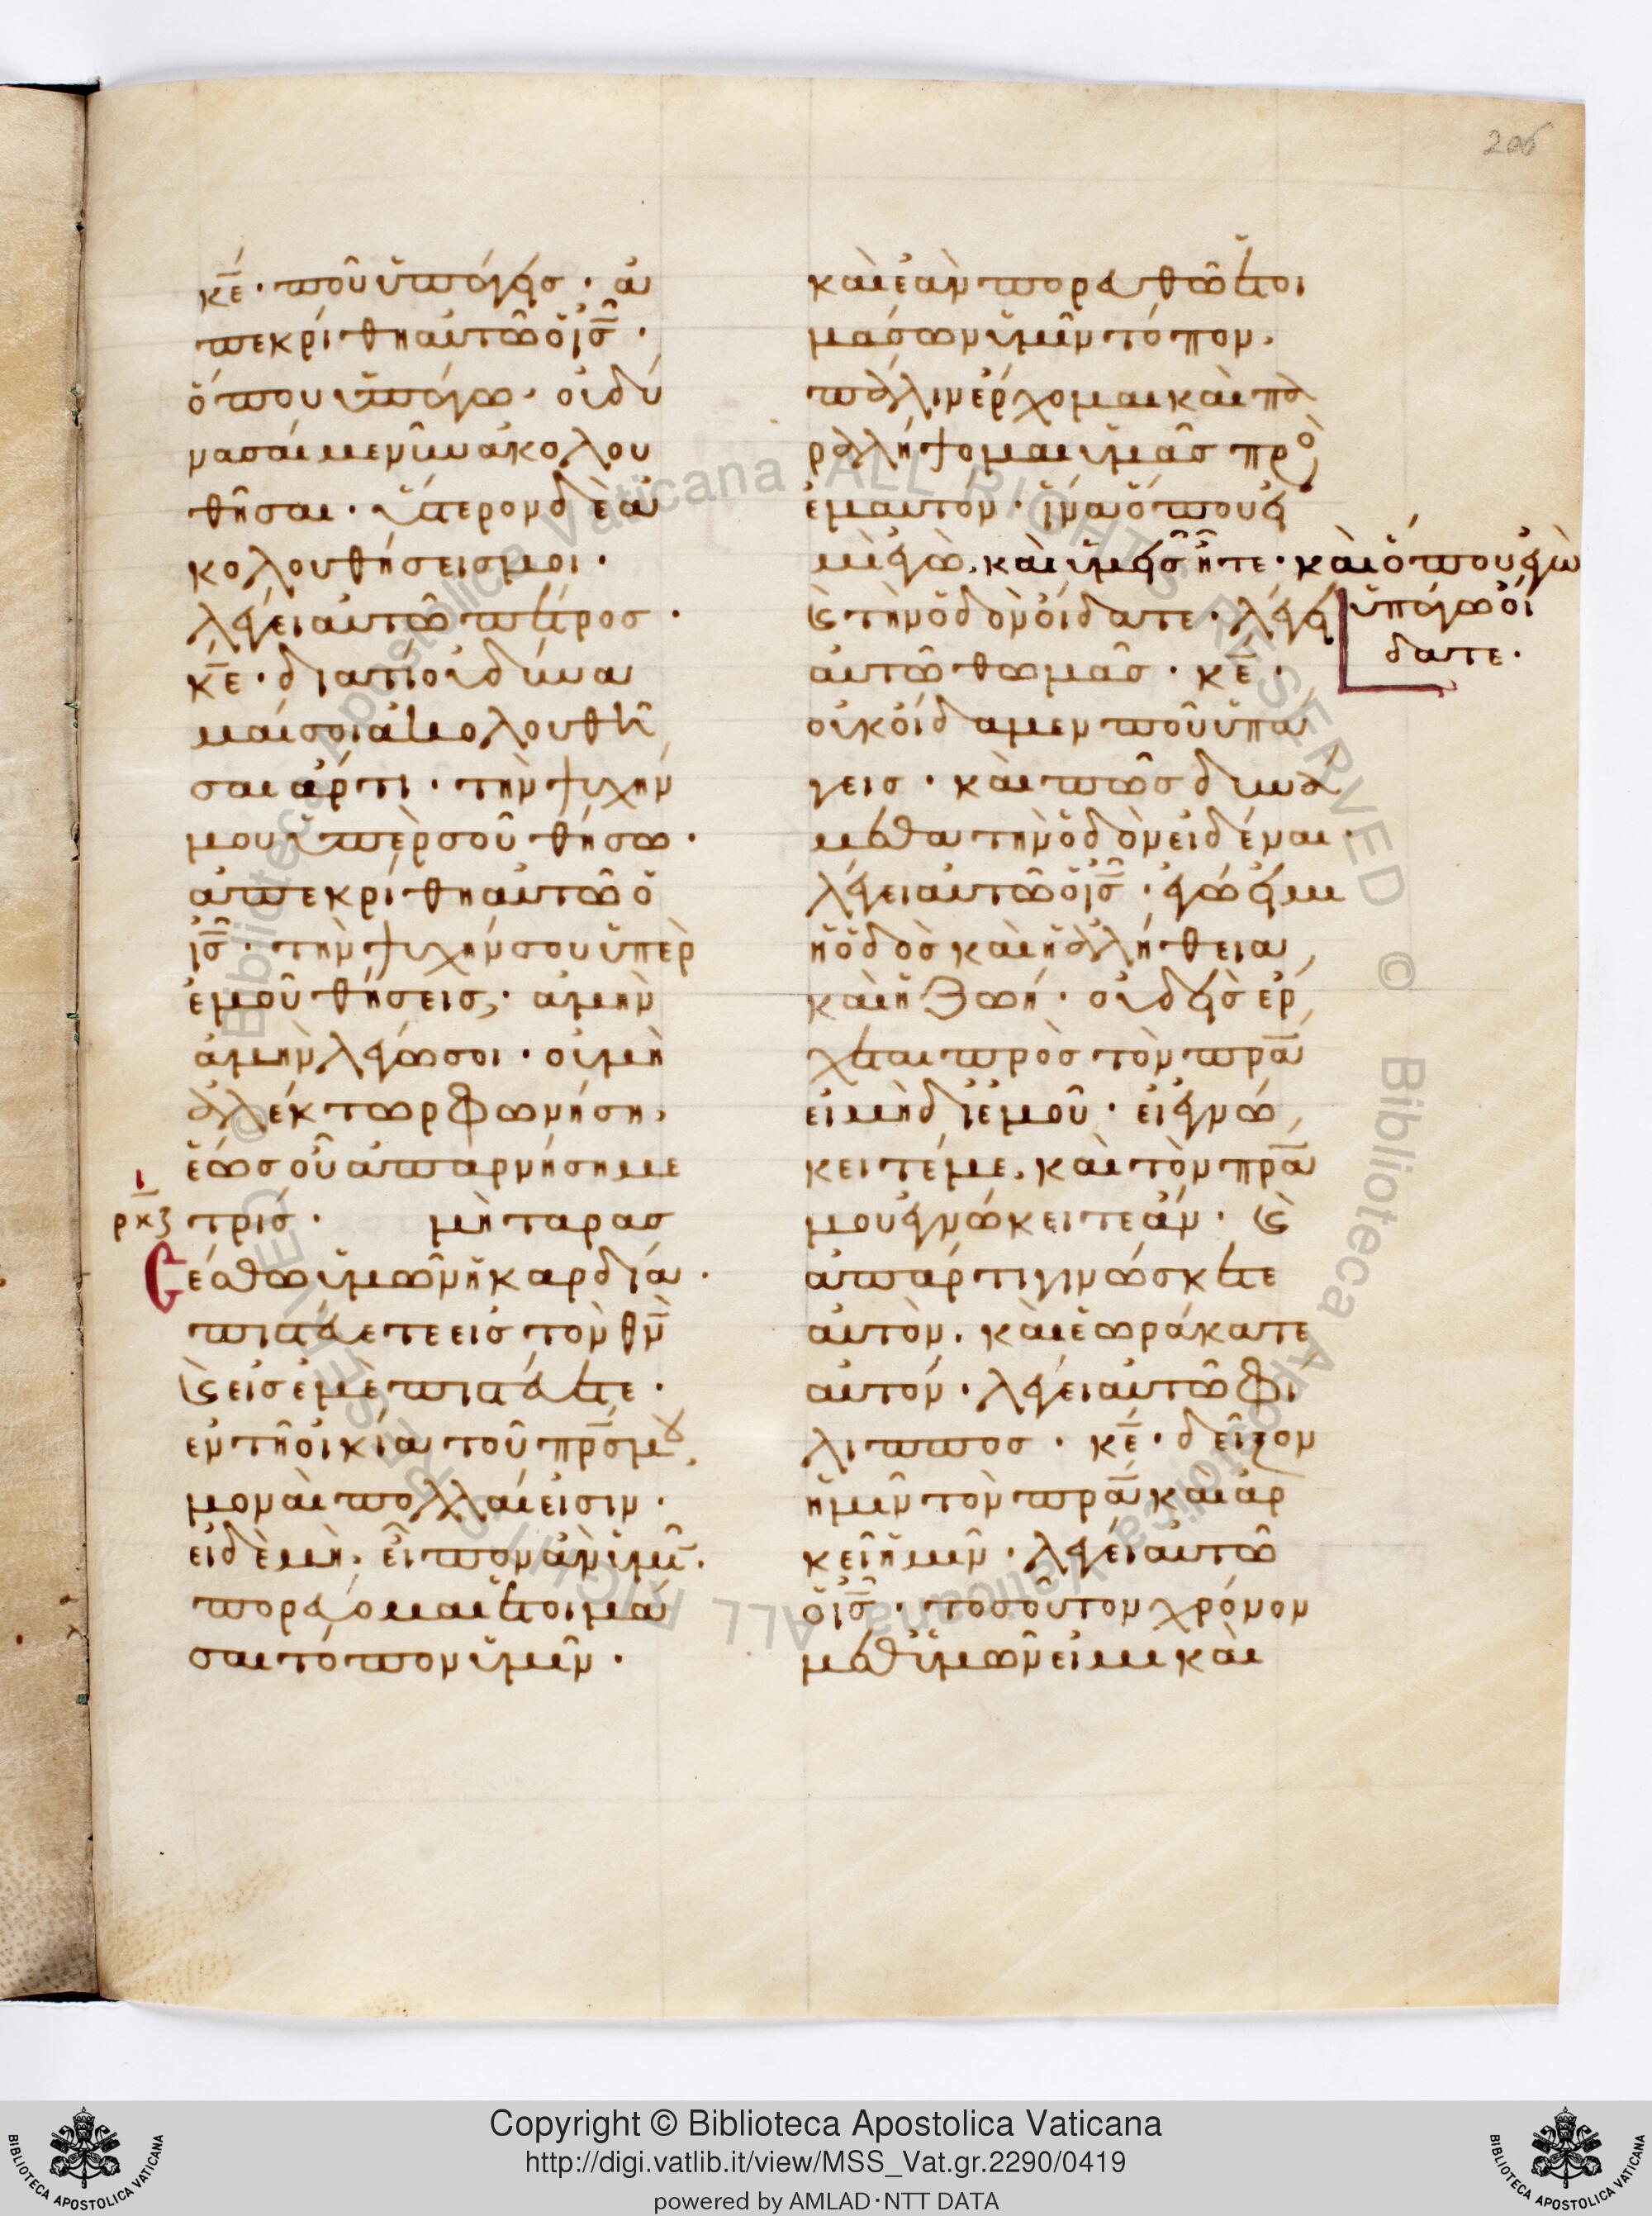 206
κ̅ε̅· ποῦ ὑπάγεις· ἀ
πεκρίθη αὐτῶ ὁ ι̅ς̅·
ὅπου ὑπάγω· οὐ δύ
νασαί μοι νῦν ἀκολου
θῆσαι· ὕστερον δὲ ἀ
κολουθήσεις μοι·
λέγει αὐτῶ πέτρος·
κ̅ε̅· διατί οὐ δύνα
μαί σοι ἀκολουθῆ
σαι ἄρτι· τὴν ψυχήν
μου ὑπὲρ σοῦ θήσω·
ἀπεκρίθη αὐτῶ ὁ
ι̅ς̅· τὴν ψυχήν σου ὑπὲρ
ἐμοῦ θήσεις· ἀμὴν
ἀμὴν λέγω σοι· οὐ μὴ
ἀλέκτωρ φωνήση,
ἕως οὗ ἀπαρνήση με
ρκζ ι τρίς· μὴ ταρας
Ϲέσθω ὑμῶν ἡ καρδία·
πιστεύετε εἰς τὸν θ̅ν̅
ϗ εἰς ἐμὲ πιστεύετε·
ἐν τῆ οἰκία τοῦ π̅ρ̅ς̅ μου
μοναὶ πολλαί εἰσιν·
εἰ δὲ μὴ, εἶπον ἂν ὑμῖν·
πορεύομαι ἑτοιμά
σαι τόπον ὑμῖν·
καὶ ἐὰν πορευθῶ ἑτοι
μάσων ὑμῖν τόπον,
πάλιν ἔρχομαι καὶ πα
ραλήψομαι ὑμᾶς πρὸ
ἐμαυτόν· ἵνα ὅπου εἰ
μὶ ἐγὼ, καὶ ὑμεῖς ἦτε· καὶ ὅπου ἐγὼ
ὑπάγω οἴ
δατε·
ϗ τὴν ὁδὸν οἴδατε· λέγει
αὐτῶ θωμᾶς· κ̅ε̅·
οὐκ οἴδαμεν ποῦ ὑπά
γεις· καὶ πῶς δυνά
μεθα τὴν ὁδὸν εἰδέναι·
λέγει αὐτῶ ὁ ι̅ς̅· ἐγώ εἰμι
ἡ ὁδὸς καὶ ἡ ἀλήθεια
καὶ ἡ ζωή· οὐδεὶς ἔρ
χεται πρὸς τὸν π̅ρ̅α̅
εἰ μὴ δι ἐμοῦ· εἰ ἐγνώ
κειτέ με, καὶ τὸν π̅ρ̅α̅
μου ἐγνώκειτε ἄν· ϗ
ἀπάρτι γινώσκετε
αὐτὸν, καὶ ἑωράκατε
αὐτόν· λέγει αὐτῶ φί
λιππος· κ̅ε̅· δεῖξον
ἡμῖν τὸν π̅ρ̅α̅ καὶ ἀρ
κεῖ ἡμῖν· λέγει αὐτῶ
ὁ ι̅ς̅· τοσοῦτον χρόνον
μεθ' ὑμῶν εἰμι καὶ
Biblioteca Apostolica Vaticana ALL RIGHTS RESERVED ©
Copyright © Biblioteca Apostolica Vaticana
http://digi.vatlib.it/view/MSS_Vat.gr.2290/0419
powered by AMLAD·NTT DATA
BIBLIOTECA APOSTOLICA VATICANA
BIBLIOTECA APOSTOLICA VATICANA